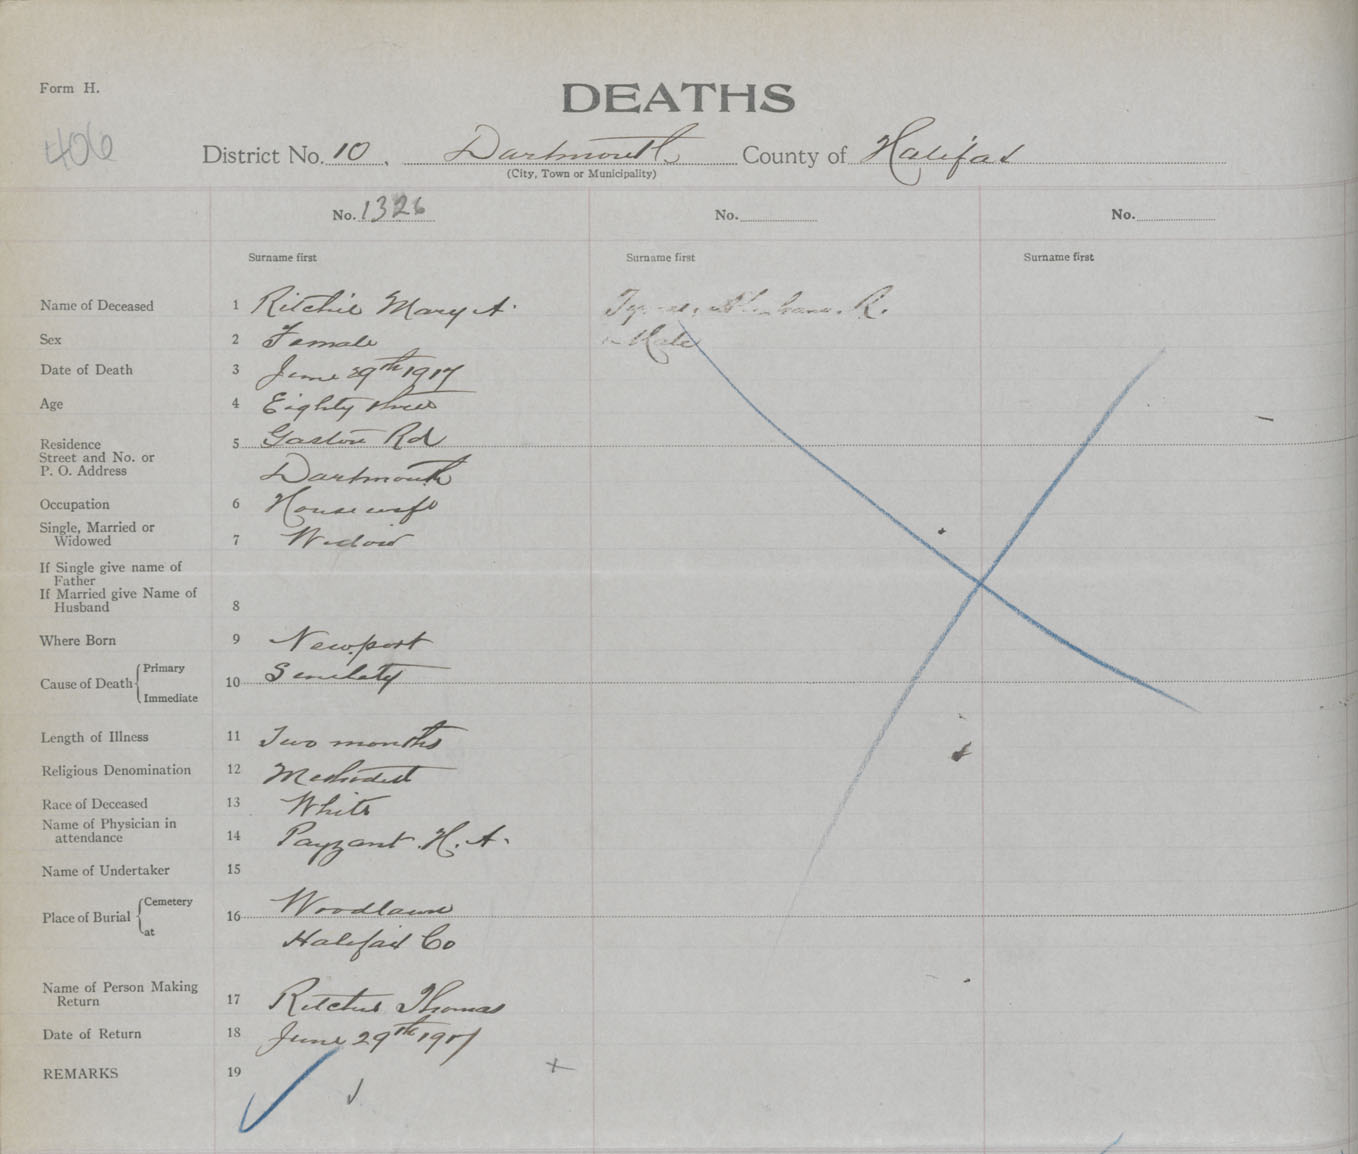 Form H.
DEATHS
406
District No. 10, Dartmouth County of Halifax
(City, Town or Municipality)
No. 1326 No. No.
Surname first Surname first Surname first
Name of Deceased 1 Ritchie Mary A. R.
Sex 2 Female Male
Date of Death 3 June 29th 1917
Age 4 Eighty three
Residence 5 Gaston Rd
Street and No. or
P. O. Address Dartmouth
Occupation 6 Housewife
Single, Married or
Widowed 7 Widow
If Single give name of
Father
If Married give Name of
Husband 8
Where Born 9 Newport
Cause of Death Primary Senility
10
Immediate
Length of Illness 11 Two months
Religious Denomination 12 Methodist
Race of Deceased 13 White
Name of Physician in
attendance 14 Payzant H. A.
Name of Undertaker 15
Place of Burial Cemetery Woodlawn
16
at Halifax Co
Name of Person Making
Return 17 Ritchie Thomas
Date of Return 18 June 29th 1917
REMARKS 19